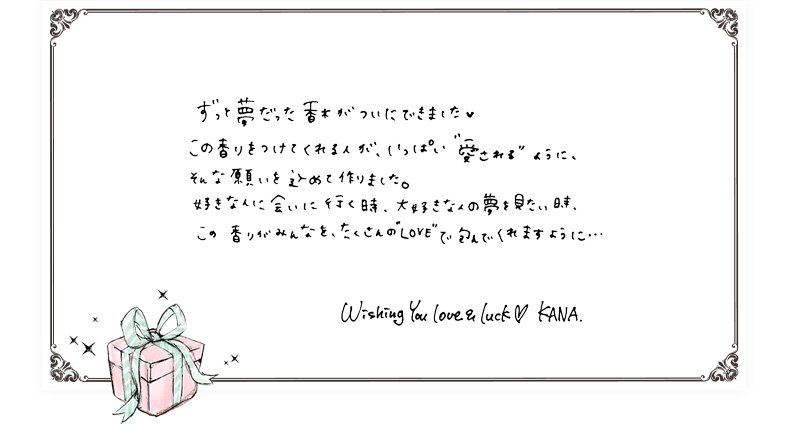 ずっと夢だった香水がついにできました♥
この香りをつけてくれる人が、いっぱい"愛される"ように、
そんな願いを込めて作りました。
好きな人に会いに行く時、大好きな人の夢を見たい時、
この香りがみんなを、たくさんの"LOVE"で包んでくれますように…
Wishing You Love & Luck♡ KANA.